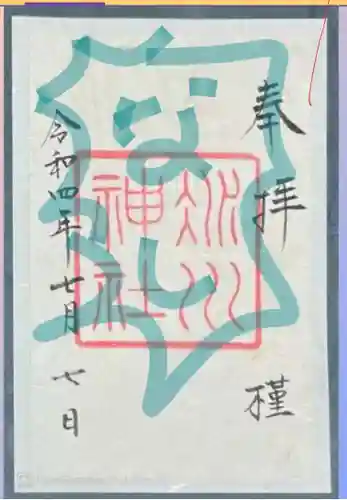 奉拝 槿
川神社
なし
令和四年七月七日